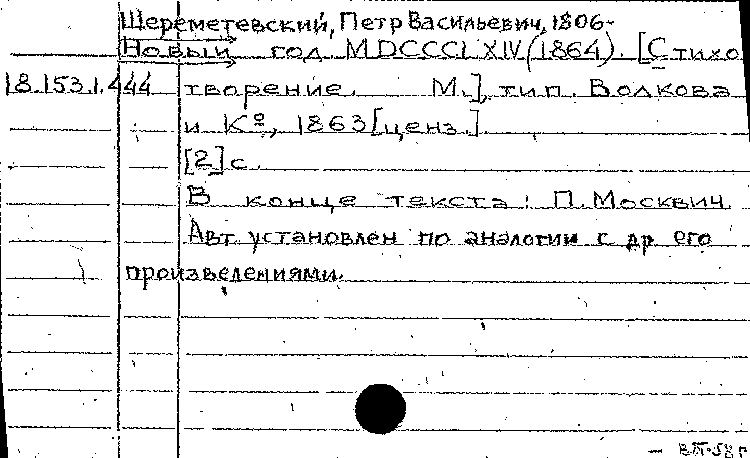 Шереметевский, Петр Васильевич, 1806-
Новый год. MDCCCLXIV (1864). [Стихо
18.153.1.444 творение. М.], тип. Волкова
и Ко, 1863 [ценз.]
[2] с.
В конце текста: П. Москвич
Авт. установлен по аналогии с др его
произведениями.